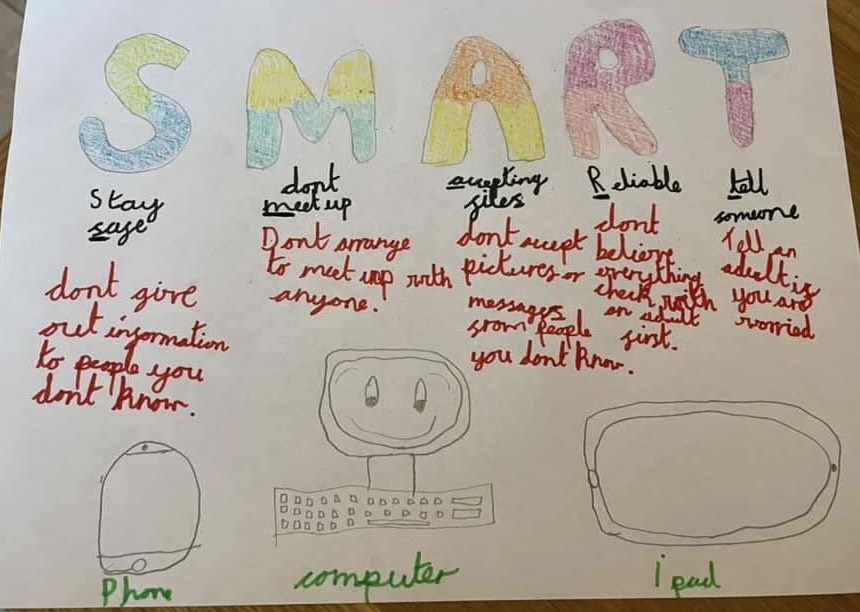 SMART
Stay
safe
dont give
out information
to people you
dont know.
dont
meet up
Dont arrange
to meet up with
anyone.
accepting
files
dont accept
pictures or
messages
from people
you dont know.
Reliable
dont
believe
everything
check with
an adult
first.
tell
someone
Tell an
adult if
you are
worried
Phone
computer
Ipad